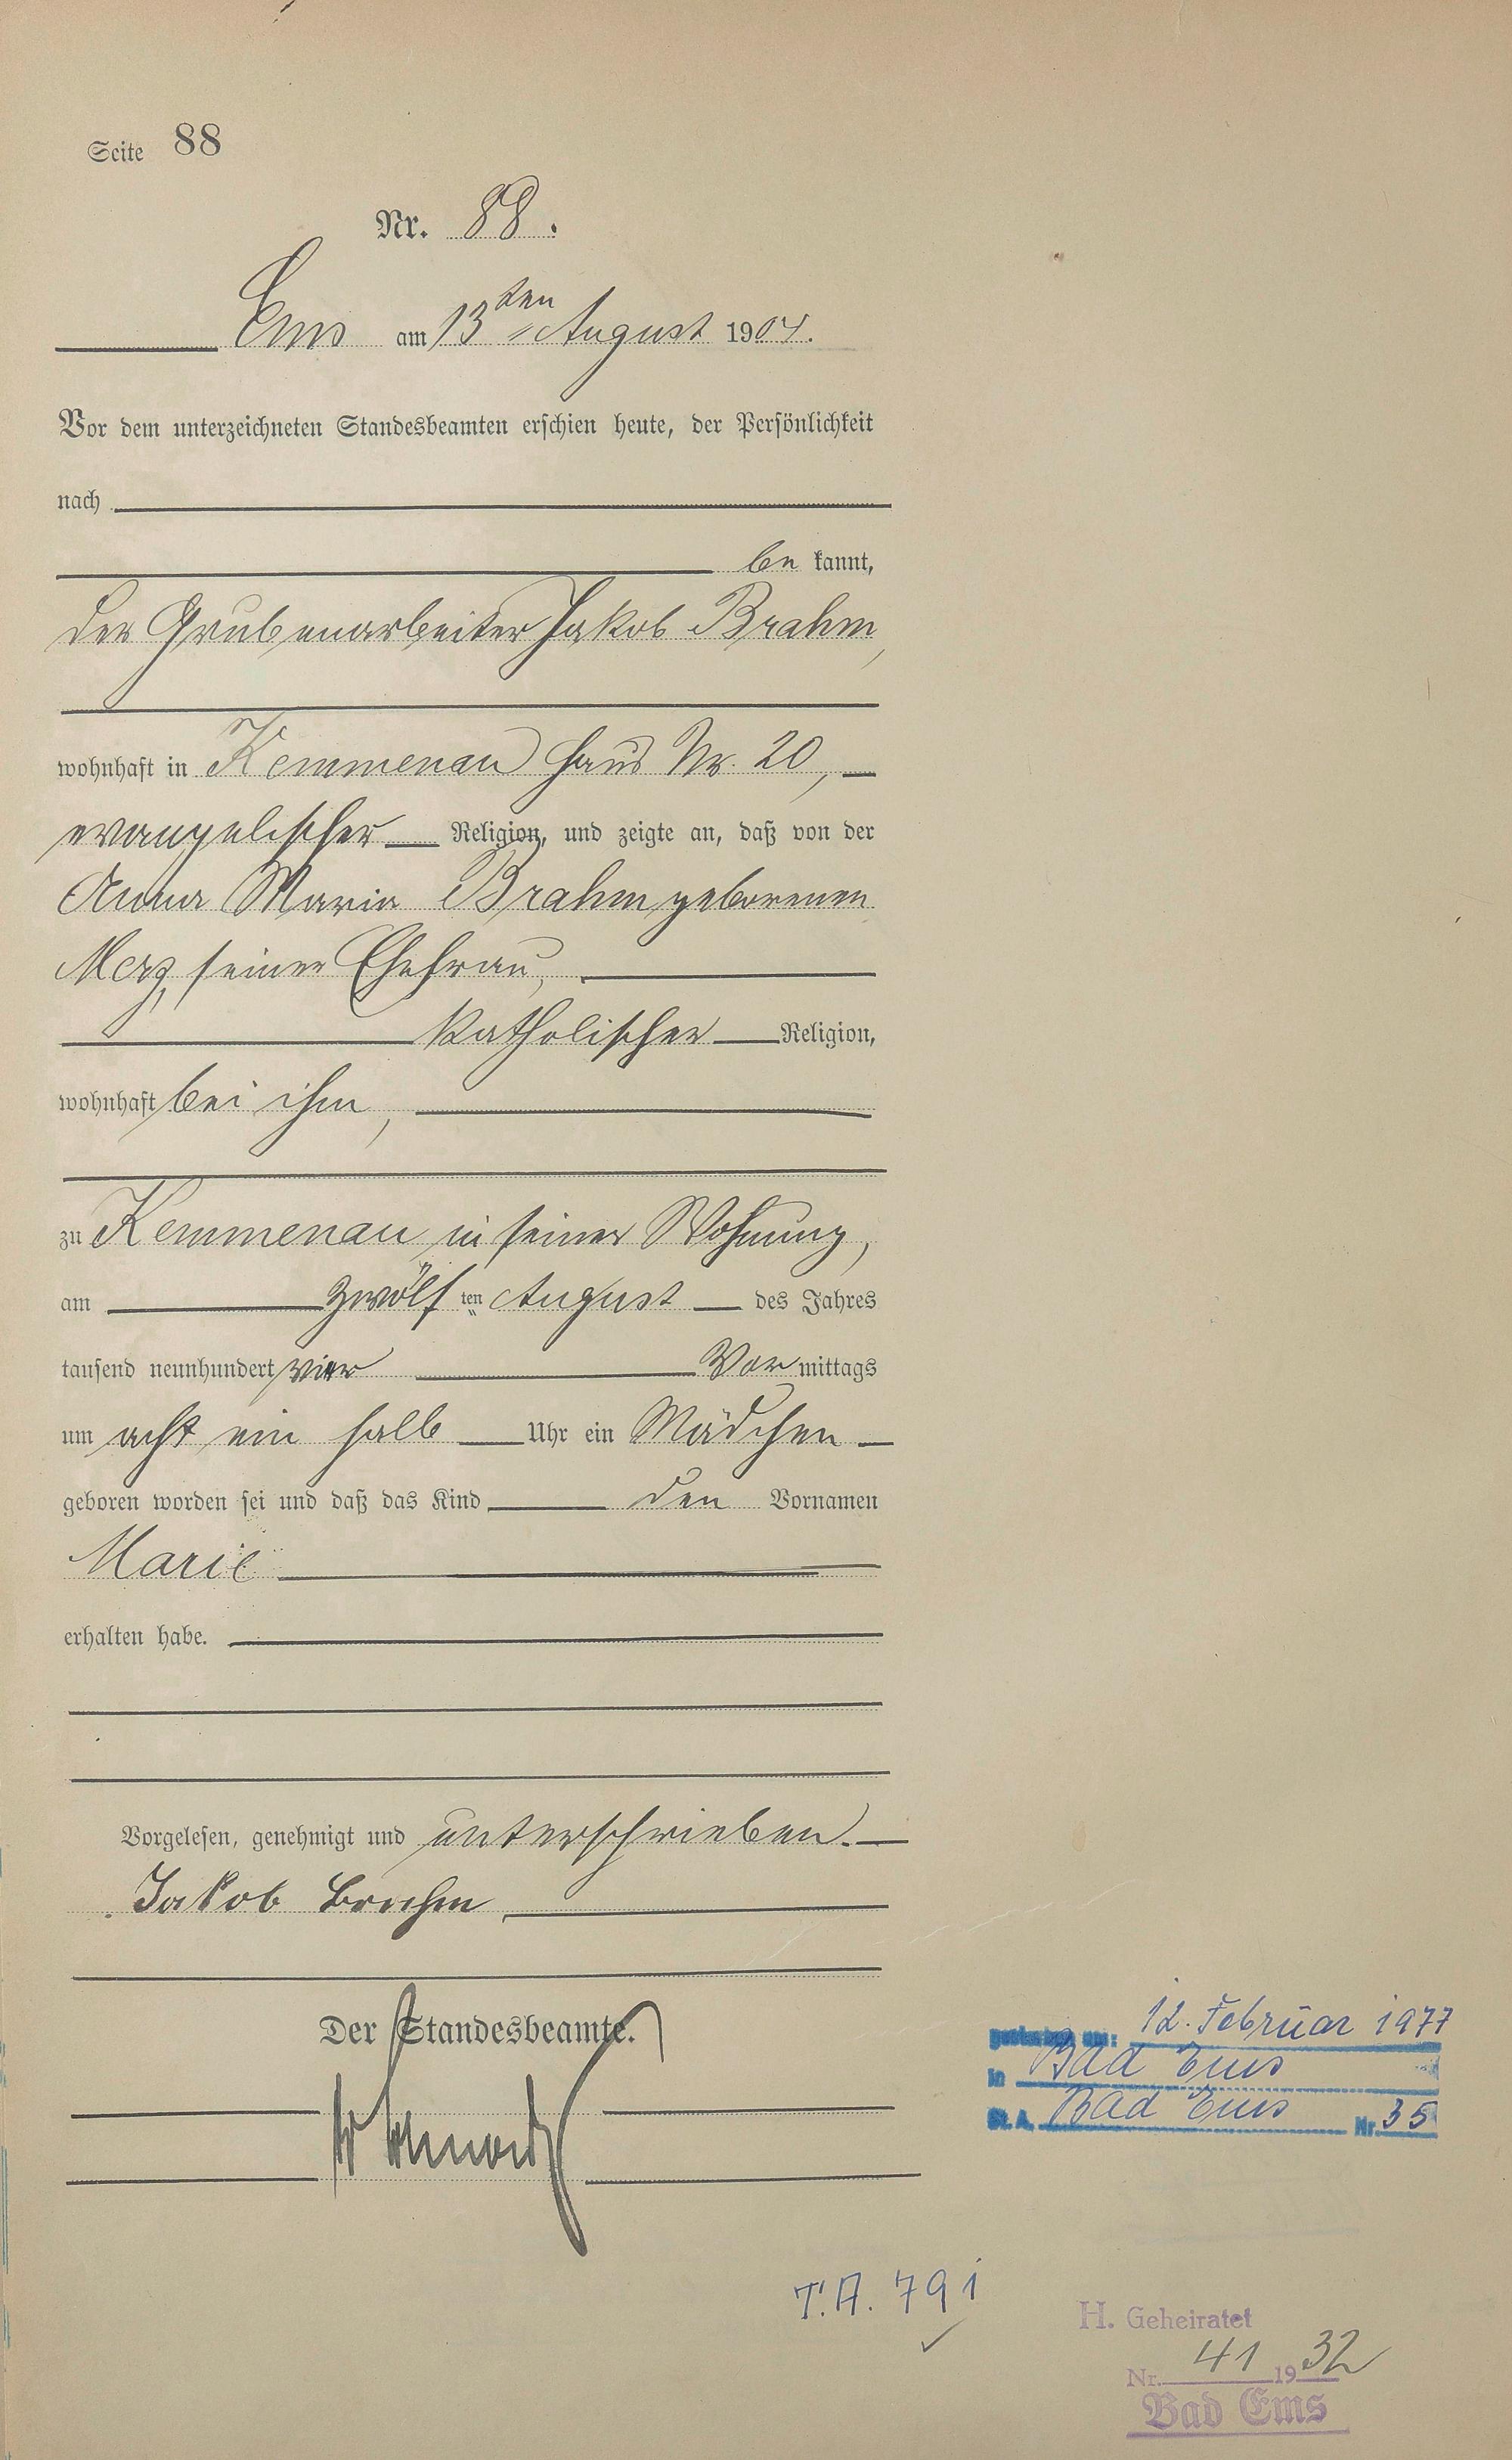 Seite 88
Nr. 88.
Ems am 13ten August 1904.
Vor dem unterzeichneten Standesbeamten erschien heute, der Persönlichkeit
nach
be kannt,
der Grubenarbeiter Jakob Brahm,
wohnhaft in Kemmenau Haus Nr. 20,
evangelischer Religion, und zeigte an, daß von der
Anna Maria Brahm geborenen
Merz, seiner Ehefrau,
katholischer Religion,
wohnhaft bei ihm,
zu Kemmenau in seiner Wohnung,
am zwölf ten August des Jahres
tausend neunhundert vier Vor mittags
um acht ein halb Uhr ein Mädchen
geboren worden sei und daß das Kind den Vornamen
Marie
erhalten habe.
Vorgelesen, genehmigt und unterschrieben.
Jakob Brahm
Der Standesbeamte.
gestorben am: 12. Februar 1977
in Bad Ems
St. A. Bad Ems Nr. 35
T.A. 791
H. Geheiratet
Nr. 41 1932
Bad Ems